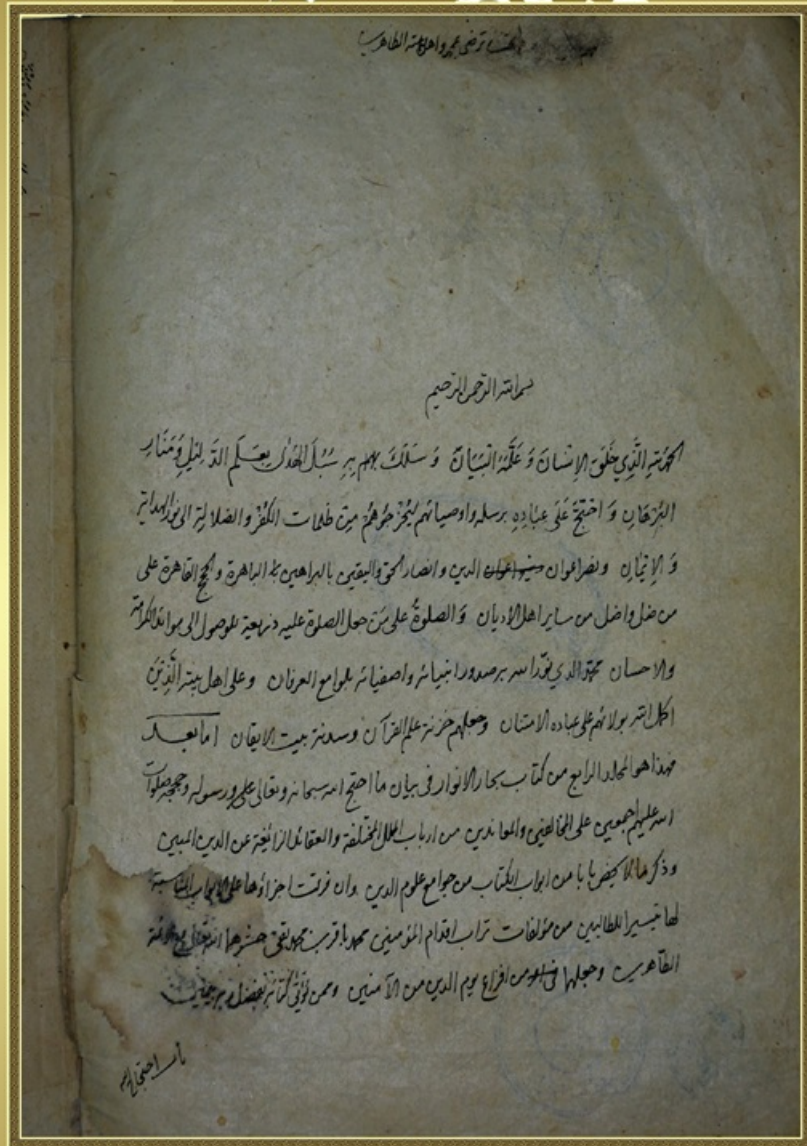 ترضى محمد واهل بيته الطاهرين
بسم الله الرحمن الرحيم
الحمد لله الَّذِي خَلَقَ الإِنسَانَ وَ عَلَّمَهُ الْبَيَانَ وَ سَلَكَ بهم سُبُلَ الْهُدٰى بِعَلَمِ الدَّلِيلِ وَ مَنَارِ
البُرْهَانِ وَ احْتَجَّ عَلَى عِبَادِهِ برسله واوصيائهم لِيُخْرِجُوهُمْ مِن ظلمات الكُفْرِ والضلالة الى نور الهداية
وَ الإِيمَانِ ونصر اعوان الدين وانصار الحق واليقين بالبراهين الباهرة والحجج القاهرة على
من ضل واضل من ساير اهل الاديان وَالصلوةُ على مَن جعل الصلوة عليه ذريعة للوصول الى موائد الكرامة
والاحسان محمّد الذي نوّر الله به صدور انبيائه واصفيائه بلوامع العرفان وعلى اهل بيته الَّذِيْنَ
اكمل الله بولائهم على عباده الامتنان وجعلهم خزنة علم القرآن وسدنة بيت الايقان اما بعد
فهذا هو المجلد الرابع من كتاب بحار الانوار في بيان ما احتج الله سبحانه وتعالى ورسوله وحججه صلوات
الله عليهم اجمعين على المخالفين والمعاندين من ارباب الملل المختلفة والعقائد الزائغة عن الدين المبين
وذكر ما لا يخص بابا من ابواب الكتاب من جوامع علوم الدين وان فرقت اجزاؤها على الابواب المناسبة
لها تيسيرا للطالبين من مؤلفات تراب اقدام المؤمنين محمد باقر بن محمد تقي حشرهما الله تعالى مع الائمة
الطاهرين وجعلهما من افزاع يوم الدين من الآمنين وممن يؤتى كتابه بيمين
باب احتجاج الله